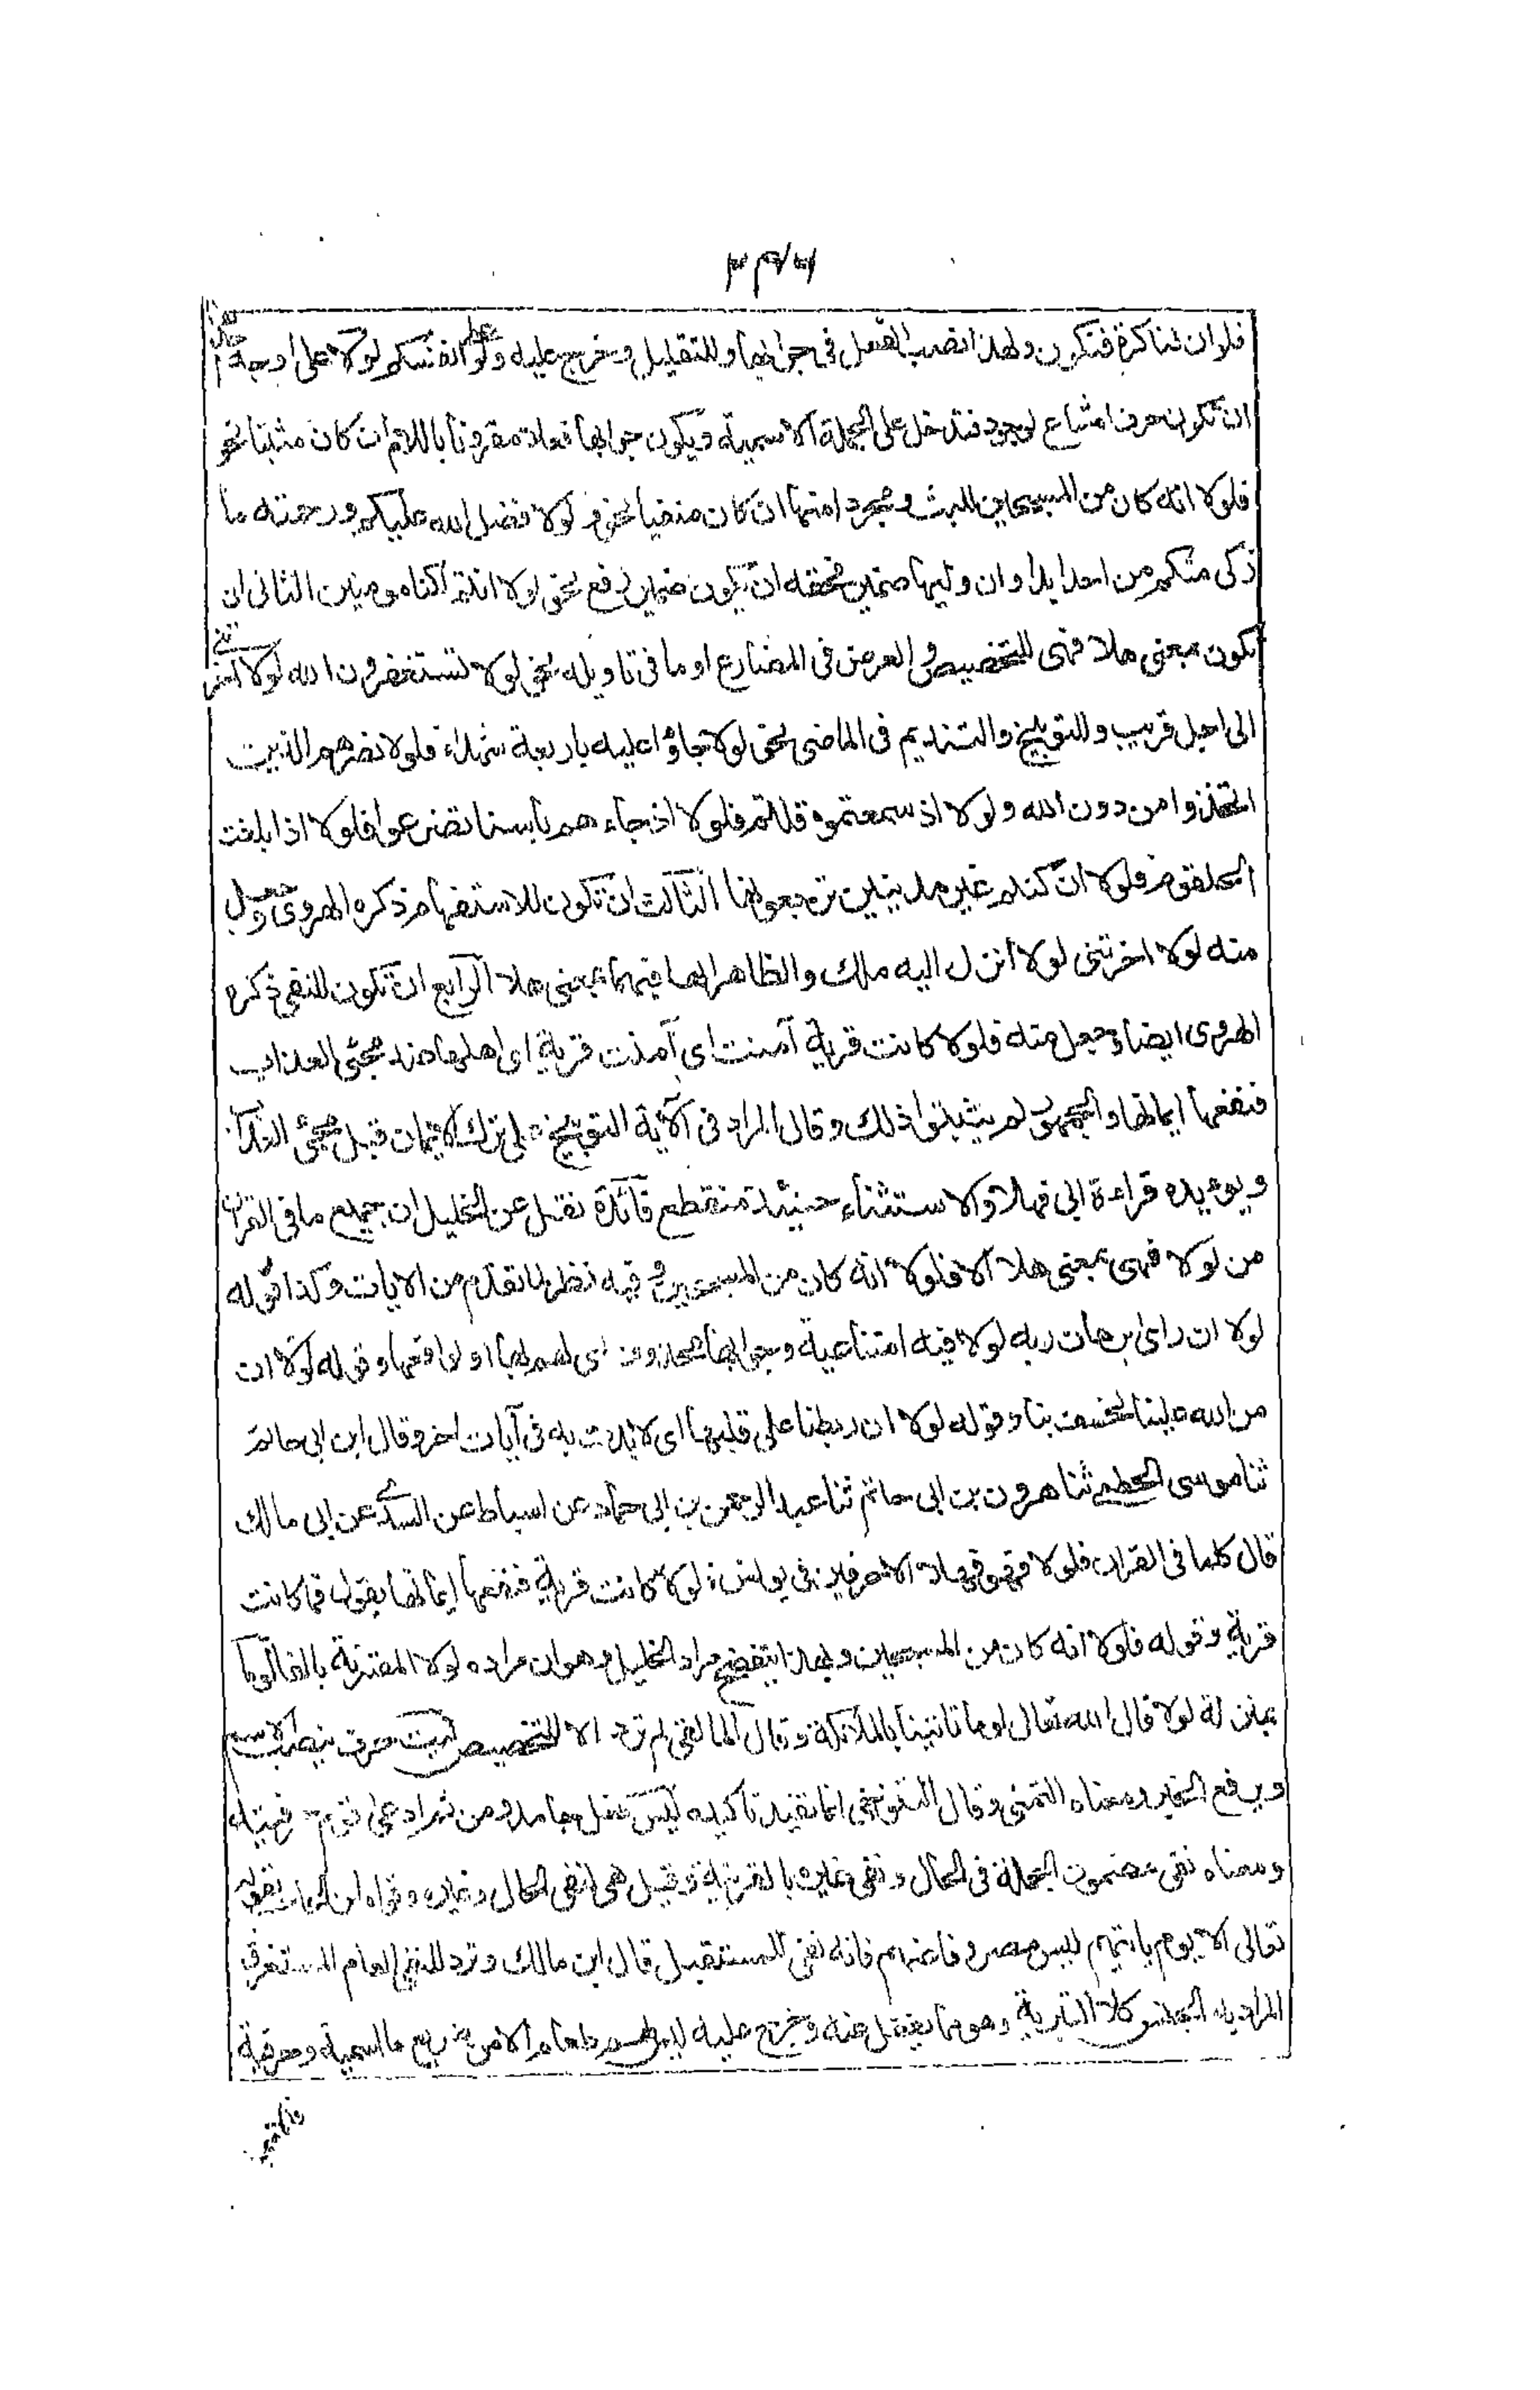 ٣٤٦
فلو ان لنا كرة فنكون ولهذا نصب الفعل فى جوابها وللتقليل وخرج عليه ولو على انفسكم لولا على اوجه احدها
ان تكون حرف امتناع لوجود فتدخل على الجملة الاسمية ويكون جوابها فعلا مقرونا باللام ان كان مثبتا نحو
فلولا انه كان من المسبحين للبث ومجردا منها ان كان منفيا نحو ولولا فضل الله عليكم ورحمته ما
زكى منكم من احد ابدا وان وليها ضمير فحقه ان يكون ضمير رفع نحو لولا انتم لكنا مومنين الثانى ان
تكون بمعنى هلا فهى للتحضيض والعرض فى المضارع او ما فى تاويله نحو لولا تستغفرون الله لولا اخرتنى
الى اجل قريب وللتوبيخ والتنديم فى الماضى نحو لولا جاؤا عليه باربعة شهداء فلولا نصرهم الذين
اتخذوا من دون الله ولولا اذ سمعتموه قلتم فلولا اذ جاءهم بأسنا تضرعوا فلولا اذا بلغت
الحلقوم فلولا ان كنتم غير مدينين ترجعونها الثالث ان تكون للاستفهام ذكره الهروى وجعل
منه لولا اخرتنى لولا أنزل اليه ملك والظاهر انها فيهما بمعنى هلا الرابع ان تكون للنفى ذكره
الهروى ايضا وجعل منه فلولا كانت قرية آمنت اى آمنت قرية اى اهلها عند مجئ العذاب
فنفعها ايمانها والجمهور لم يثبتوا ذلك وقال المراد فى الآية التوبيخ على ترك الايمان قبل مجئ العذاب
ويويده قراءة ابى فهلا والاستثناء حينئذ منقطع فآئدة نقل عن الخليل ان جميع ما فى القران
من لولا فهى بمعنى هلا الا فلولا انه كان من المسبحين وفيه نظر لما تقدم من الايات وكذا قوله
لولا ان راى برهان ربه لولا فيه امتناعية وجوابها محذوف اى لهم بها او لواقعها وقوله لولا ان
من الله علينا لخسف بنا وقوله لولا ان ربطنا على قلبها اى لابدت به فى آيات اخر وقال ابن ابى حاتم
ثنا موسى الخطمى ثنا هرون بن ابى حاتم ثنا عبد الرحمن بن ابى حماد عن اسباط عن السدى عن ابى مالك
قال كلما فى القران فلولا فهو فهلا الا حرفين فى يونس فلولا كانت قرية فنفعها ايمانها يقول فما كانت
قرية وقوله فلولا انه كان من المسبحين وبهذا يتضح مراد الخليل وهو ان مراده لولا المقترنة بالفا لوما
بمنزلة لولا قال الله تعالى لوما تاتينا بالملائكة وقال المالقى لم ترد الا للتحضيض ليت حرف ينصب الاسم
ويرفع الخبر ومعناه التمنى وقال التنوخى انها تفيد تاكيده ليس فعل جامد ومن ثم ادعى قوم حرفيته
ومعناه نفى مضمون الجملة فى الحال ونفى غيره بالقرينة وقيل هى لنفى الحال وغيره وقواه ابن الحاجب بقوله
تعالى الا يوم ياتيهم ليس مصروفا عنهم فانه نفى للمستقبل قال ابن مالك وترد للنفى العام المستغرق
المراد به الجنس كلا التبرية وهو مما يغفل عنه وخرج عليه ليس لهم طعام الا من ضريع ما اسمية وحرفية